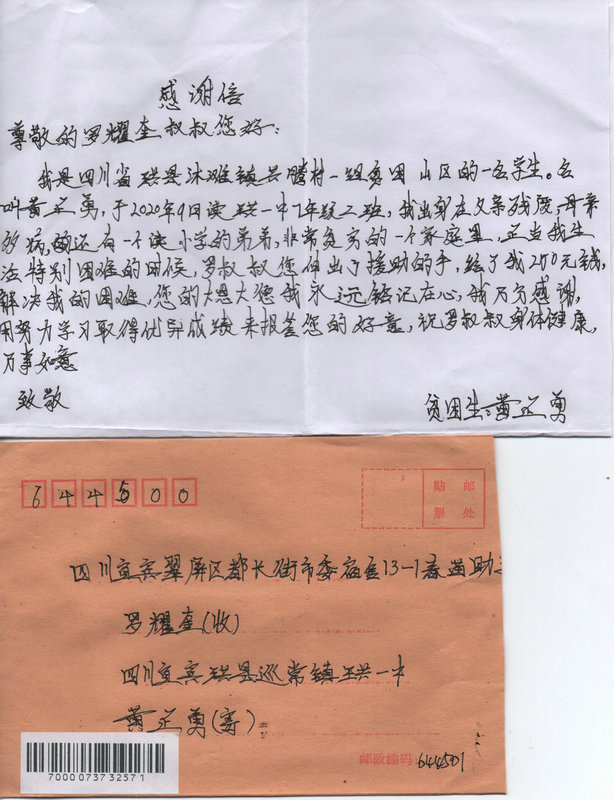 感谢信
尊敬的罗耀奎叔叔您好：
我是四川省珙县沐滩镇兴腾村一组贫困山区的一名学生。名
叫黄正勇，于2020年9日读珙一中7年级2班，我出身在父亲残废，母亲
多病，的还有一个读小学的弟弟，非常贫穷的一个家庭里，正当我生
活特别困难的时候，罗叔叔您伸出了援助的手，给了我200元钱，
解决我的困难，您的大恩大德我永远铭记在心，我万分感谢，
用努力学习取得优异成绩来报答您的好意，祝罗叔叔身体健康，
万事如意
致敬
贫困生：黄正勇
644500
贴邮
票处
四川宜宾翠屏区都长街市委宿舍13-1春苗助
罗耀奎(收)
四川宜宾珙县巡常镇珙一中
黄正勇(寄)
邮政编码 644501
7000073732571